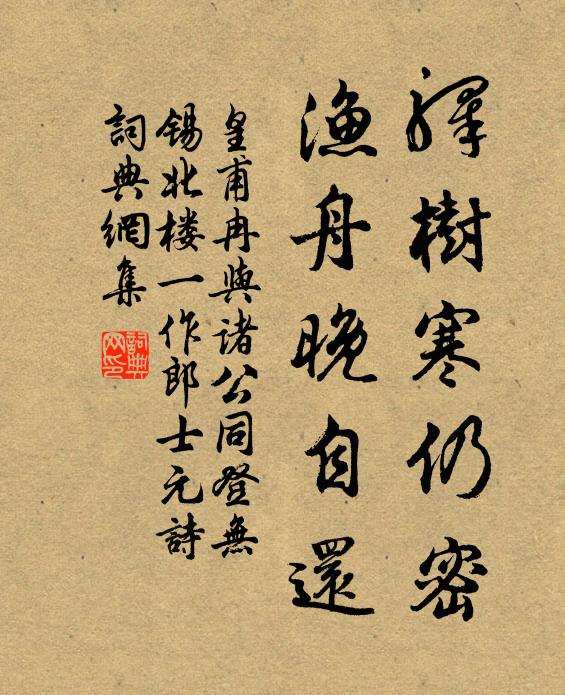 驛樹寒仍密
漁舟晚自還
皇甫冉與諸公同登無
錫北楼一作郎士元詩
詞典網集
詞典
网印